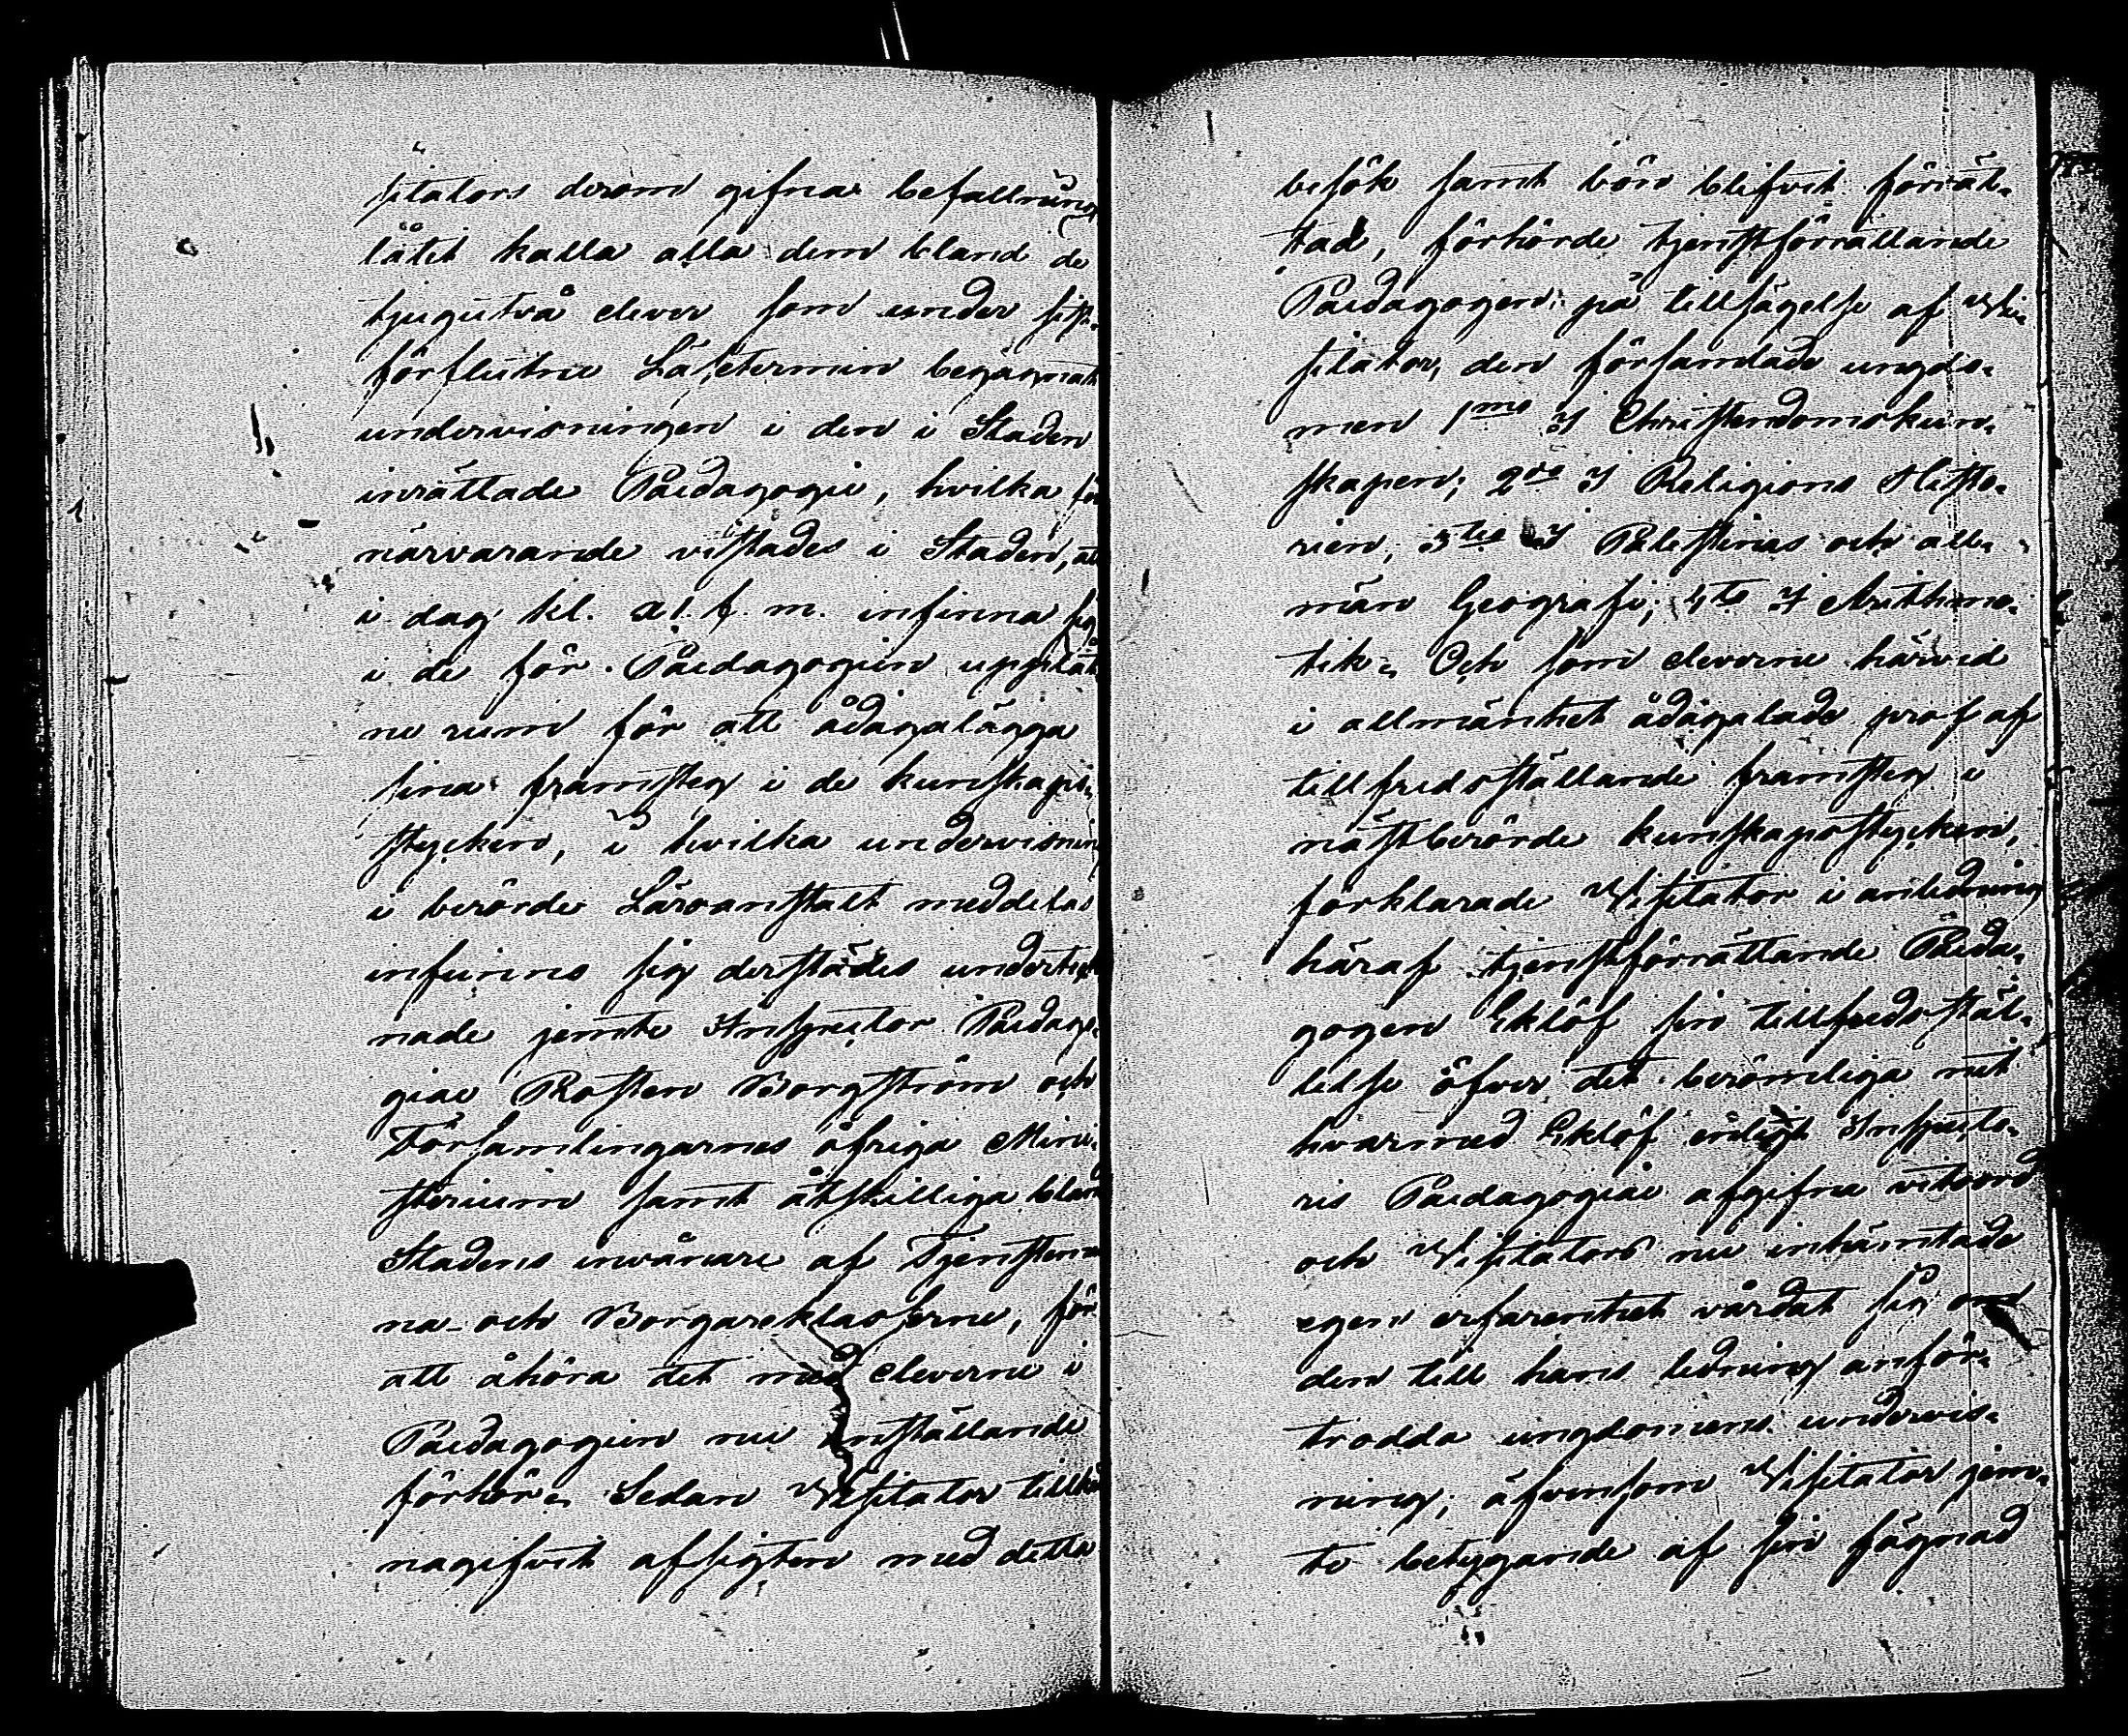 sitators derom gifna befallning
låtit kalla alla dem bland de
tjugutvå elever som under sist
förflutne Läsetermin begagnat
undervisningen i den i Staden
inrättade Pædagogie, hvilka för
närvarande vistades i Staden, att
i dag kl. f. m. infinna sig
i de för Pædagogien upplåt
ne rum för att ådagalägga
sina framsteg i de kunskaps-
stycken, i hvilka undervisning
i berörde Läroanstalt meddelas
infunno sig derstädes underteck
nade jemte Inspector Pædago-
giae Prosten Borgström och
Församlingarnes öfriga Mini-
sterium samt åtskilliga bland
Stadens invånare af Tjenstema
na- och Borgareklasserne, för
att åhöra det med eleverne i
Pædagogien nu anställande
förhör. Sedan Visitator tillkän
nagifvit afsigten med detta
besök samt bön blifvit förrät-
tad, förhörde tjenstförrättande
Pædagogen på tillsägelse af Vi-
sitator, den församlade ungdo-
men 1mo I Christendomskun-
skapen; 2do I Religions Histo-
rien; 3tio I Palestinas och all-
män Geografi; 4to I Arithme-
tik. Och som eleverne härvid
i allmänhet ådagalade prof af
tillfredsställande framsteg i
nästberörde kunskapsstycken,
förklarade Visitator i anledning
häraf tjenstförrättande Pæda-
gogen Eklöf sin tillfredsstäl-
lelse öfver det berömliga nit
hvarmed Eklöf enligt Inspecto-
ris Pædagogiae afgifne vitsord
och Visitators nu inhämtade
egen erfarenhet vårdat sig om
den till hans ledning anför-
trodda ungdomens undervis-
ning; äfvensom Visitator jem-
te betygande af sin fägnad